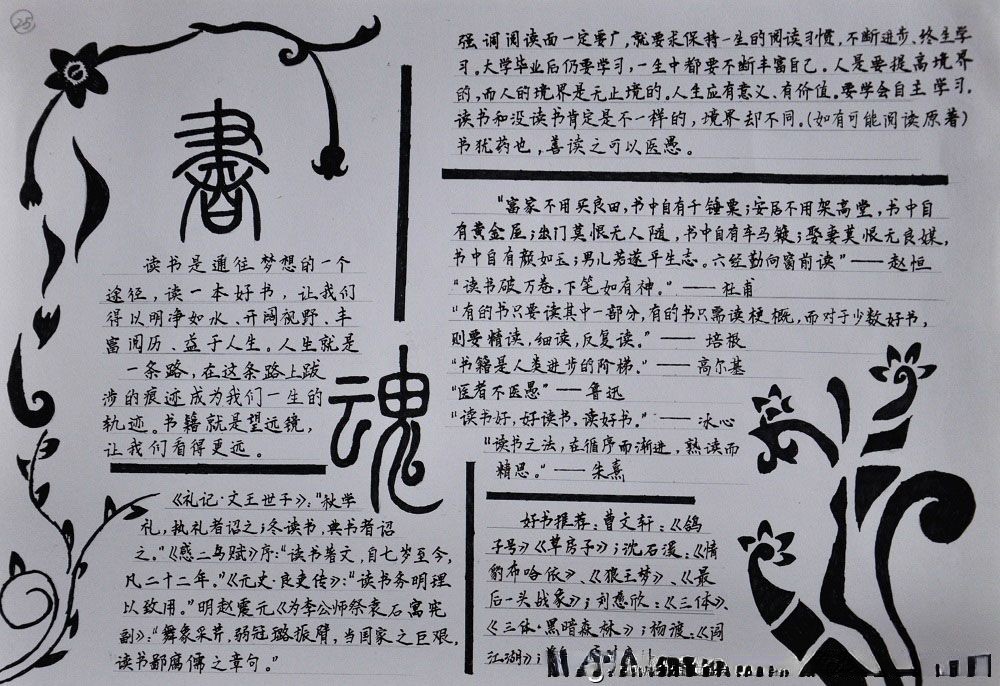 25
書
魂
读书是通往梦想的一个
途径，读一本好书，让我们
得以明净如水、开阔视野、丰
富阅历、益于人生。人生就是
一条路，在这条路上跋
涉的痕迹成为我们一生的
轨迹。书籍就是望远镜，
让我们看得更远。
《礼记·文王世子》："秋学
礼，执礼者诏之；冬读书，典书者诏
之。"《感二鸟赋》序："读书著文，自七岁至今，
凡二十二年。"《元史·良吏传》："读书务明理
以致用。"明赵震元《为李公师祭袁石寓宪
副》："舞象采芹，弱冠璐振臂，当国家之巨艰，
读书鄙腐儒之章句。"
强调阅读面一定要广，就要求保持一生的阅读习惯，不断进步、终生学
习。大学毕业后仍要学习，一生中都要不断丰富自己。人是要提高境界
的，而人的境界是无止境的。人生应有意义、有价值。要学会自主学习。
读书和没读书肯定是不一样的，境界却不同。(如有可能阅读原著)
书犹药也，善读之可以医愚。
"富家不用买良田，书中自有千锺粟；安居不用架高堂，书中自
有黄金屋；出门莫恨无人随，书中自有车马簇；娶妻莫恨无良媒，
书中自有颜如玉；男儿若遂平生志。六经勤向窗前读"——赵恒
"读书破万卷，下笔如有神。"——杜甫
"有的书只要读其中一部分，有的书只需读梗概，而对于少数好书，
则要精读，细读，反复读。"——培根
"书籍是人类进步的阶梯。"——高尔基
"医者不医愚"——鲁迅
"读书好，好读书，读好书。"——冰心
"读书之法，在循序而渐进，熟读而
精思。"——朱熹
好书推荐：曹文轩：《鸽
子号》《草房子》；沈石溪：《情
豹布哈依》、《狼王梦》、《最
后一头战象》；刘慈欣：《三体》、
《三体·黑暗森林》；杨渡：《闯
江湖》；